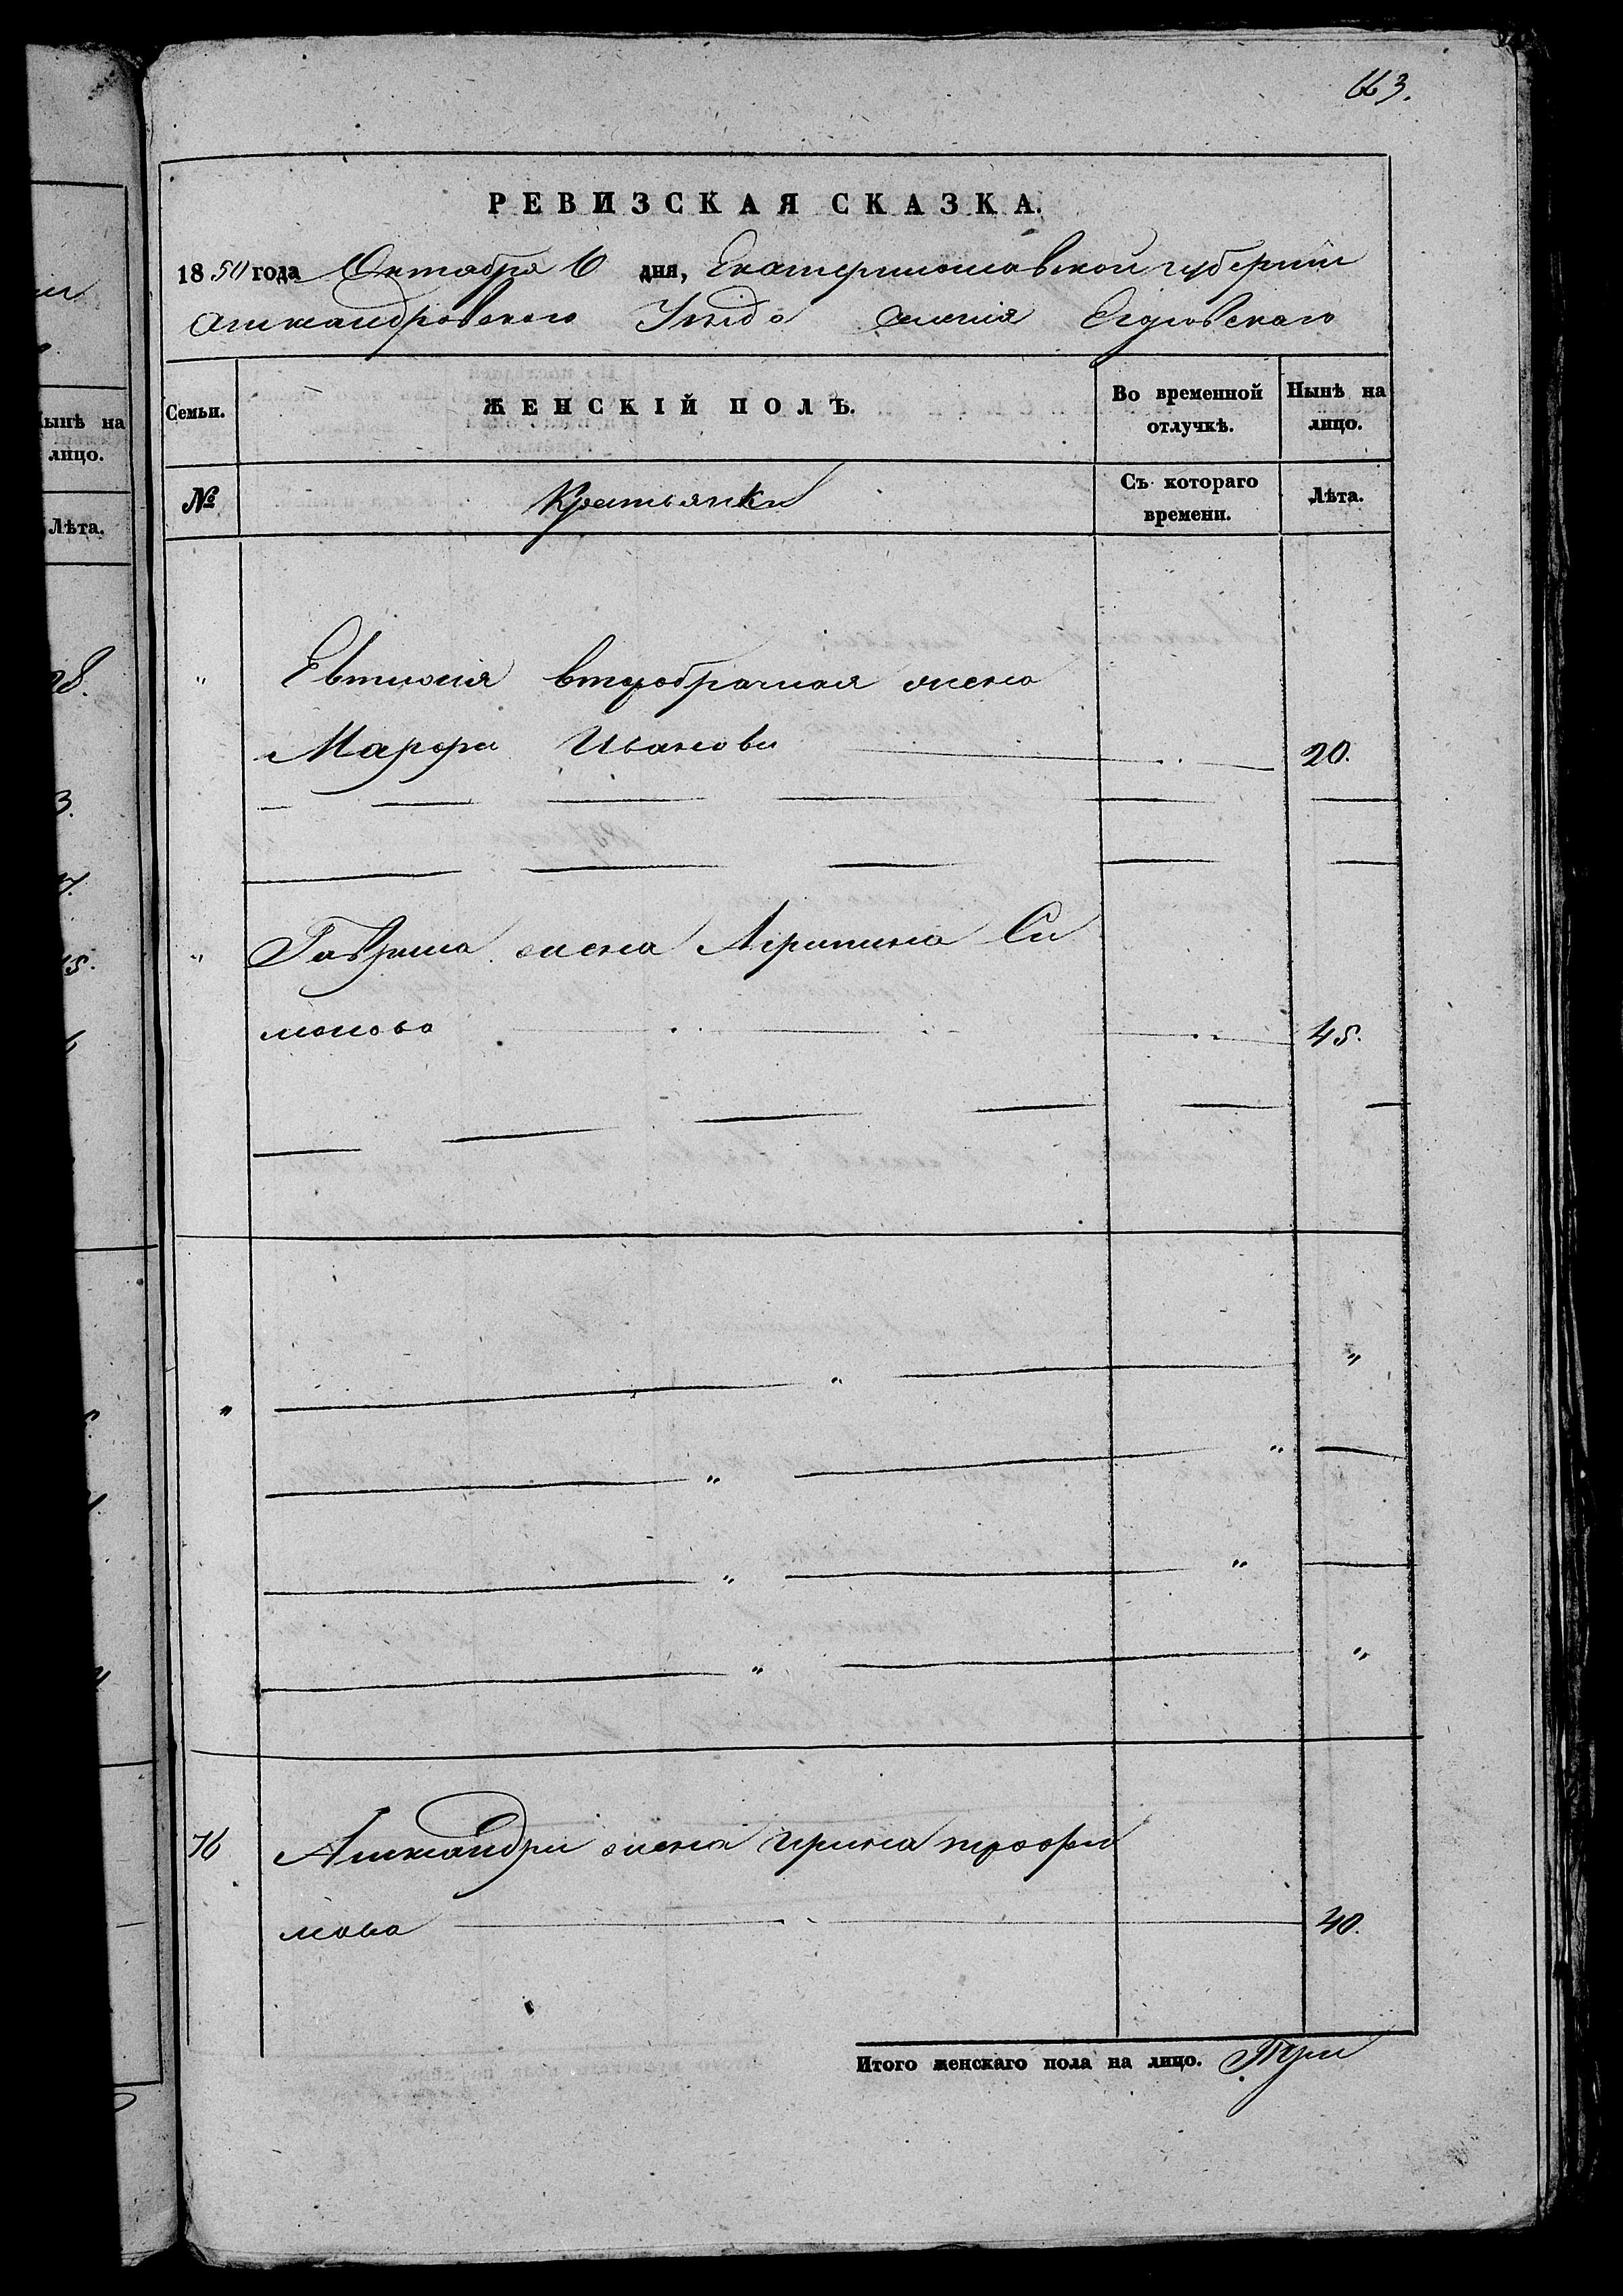 663.
РЕВИЗСКАЯ СКАЗКА.
1850 года Октября 6 дня, Екатеринославской губернии
Александровского Уезда Селения
Семьи. ЖЕНСКІЙ ПОЛЪ. Во временной отлучкѣ. Нынѣ на лицо.
№ Крестьянки Съ котораго времени. Лѣта.
" втробрачная жена
Марфа Иванова 20.
" Гаврила жена Агрипина Си
монова 45.
" " "
" "
" "
" "
76 Александри жена Ирина трофи
мова 40.
Итого женскаго пола на лицо. Три
ынѣ на
лицо.
Лѣта.